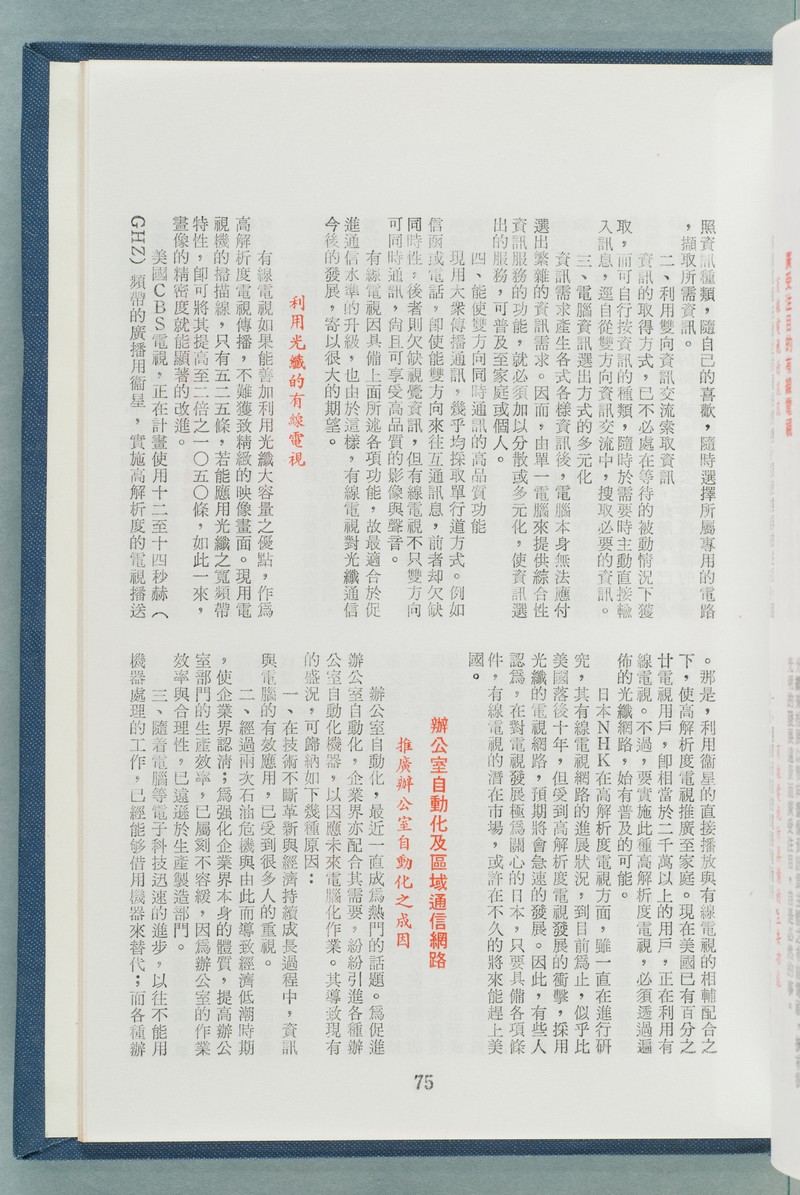 照資訊種類，隨自己的喜歡，隨時選擇所屬專用的電路
，擷取所需資訊。
二、利用雙向資訊交流索取資訊
資訊的取得方式，已不必處在等待的被動情況下獲
取，而可自行按資訊的種類，隨時於需要時主動直接輸
入訊息，逕自從雙方向資訊交流中，搜取必要的資訊。
三、電腦資訊選出方式的多元化
資訊需求產生各式各樣資訊後，電腦本身無法應付
選出繁雜的資訊需求。因而，由單一電腦來提供綜合性
資訊服務的功能，就必須加以分散或多元化，使資訊選
出的服務，可普及至家庭或個人。
四、能使雙方向同時通訊的高品質功能
現用大衆傳播通訊，幾乎均採取單行道方式。例如
信函或電話，卽使能雙方向來往互通訊息，前者却欠缺
同時性，後者則欠缺視覺資訊，但有線電視不只雙方向
可同時通訊，尙且可享受高品質的影像與聲音。
有線電視因具備上面所述各項功能，故最適合於促
進通信水準的升級，也由於這樣，有線電視對光纖通信
今後的發展，寄以很大的期望。
利用光纖的有線電視
有線電視如果能善加利用光纖大容量之優點，作爲
高解析度電視傳播，不難獲致精緻的映像畫面。現用電
視機的掃描線，只有五二五條，若能應用光纖之寬頻帶
特性，卽可將其提高至二倍之一〇五〇條，如此一來，
畫像的精密度就能顯著的改進。
美國CBS電視，正在計畫使用十二至十四秒赫（
GHZ）頻帶的廣播用衞星，實施高解析度的電視播送
。那是，利用衞星的直接播放與有線電視的相輔配合之
下，使高解析度電視推廣至家庭。現在美國已有百分之
廿電視用戶，卽相當於二千萬以上的用戶，正在利用有
線電視。不過，要實施此種高解析度電視，必須透過遍
佈的光纖網路，始有普及的可能。
日本NHK在高解析度電視方面，雖一直在進行研
究，其有線電視網路的進展狀況，到目前爲止，似乎比
美國落後十年，但受到高解析度電視發展的衝擊，採用
光纖的電視網路，預期將會急速的發展。因此，有些人
認爲，在對電視發展極爲關心的日本，只要具備各項條
件，有線電視的潛在市場，或許在不久的將來能趕上美
國。
辦公室自動化及區域通信網路
推廣辦公室自動化之成因
辦公室自動化，最近一直成爲熱門的話題。爲促進
辦公室自動化，企業界亦配合其需要，紛紛引進各種辦
公室自動化機器，以因應未來電腦化作業。其導致現有
的盛況，可歸納如下幾種原因：
一、在技術不斷革新與經濟持續成長過程中，資訊
與電腦的有效應用，已受到很多人的重視。
二、經過兩次石油危機與由此而導致經濟低潮時期
，使企業界認清；爲强化企業界本身的體質，提高辦公
室部門的生產效率，已屬刻不容緩，因爲辦公室的作業
效率與合理性，已遠遜於生產製造部門。
三、隨着電腦等電子科技迅速的進步，以往不能用
機器處理的工作，已經能够借用機器來替代；而各種辦
75